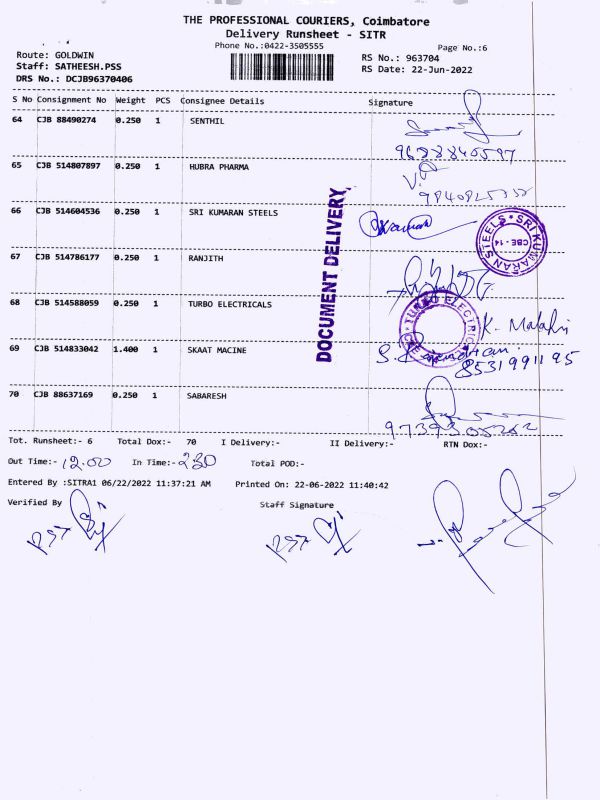 THE PROFESSIONAL COURIERS, Coimbatore
Delivery Runsheet - SITR
Phone No.:0422-3505555
Page No.:6
Route: GOLDWIN
RS No.: 963704
Staff: SATHEESH.PSS
RS Date: 22-Jun-2022
DRS No.: DCJB96370406
S No Consignment No Weight PCS Consignee Details Signature
64 CJB 88490274 0.250 1 SENTHIL
9688840597
65 CJB 514807897 0.250 1 HUBRA PHARMA
66 CJB 514604536 0.250 1 SRI KUMARAN STEELS
SRI KUMARAN STEELS CBE - 14
DOCUMENT DELIVERY
67 CJB 514786177 0.250 1 RANJITH
68 CJB 514588059 0.250 1 TURBO ELECTRICALS
TURBO ELECTRIC
69 CJB 514833042 1.400 1 SKAAT MACINE
8531991195
70 CJB 88637169 0.250 1 SABARESH
9739305262
Tot. Runsheet:- 6 Total Dox:- 70 I Delivery:- II Delivery:- RTN Dox:-
Out Time:- 12.00 In Time:- 2.30 Total POD:-
Entered By :SITRA1 06/22/2022 11:37:21 AM Printed On: 22-06-2022 11:40:42
Verified By Staff Signature